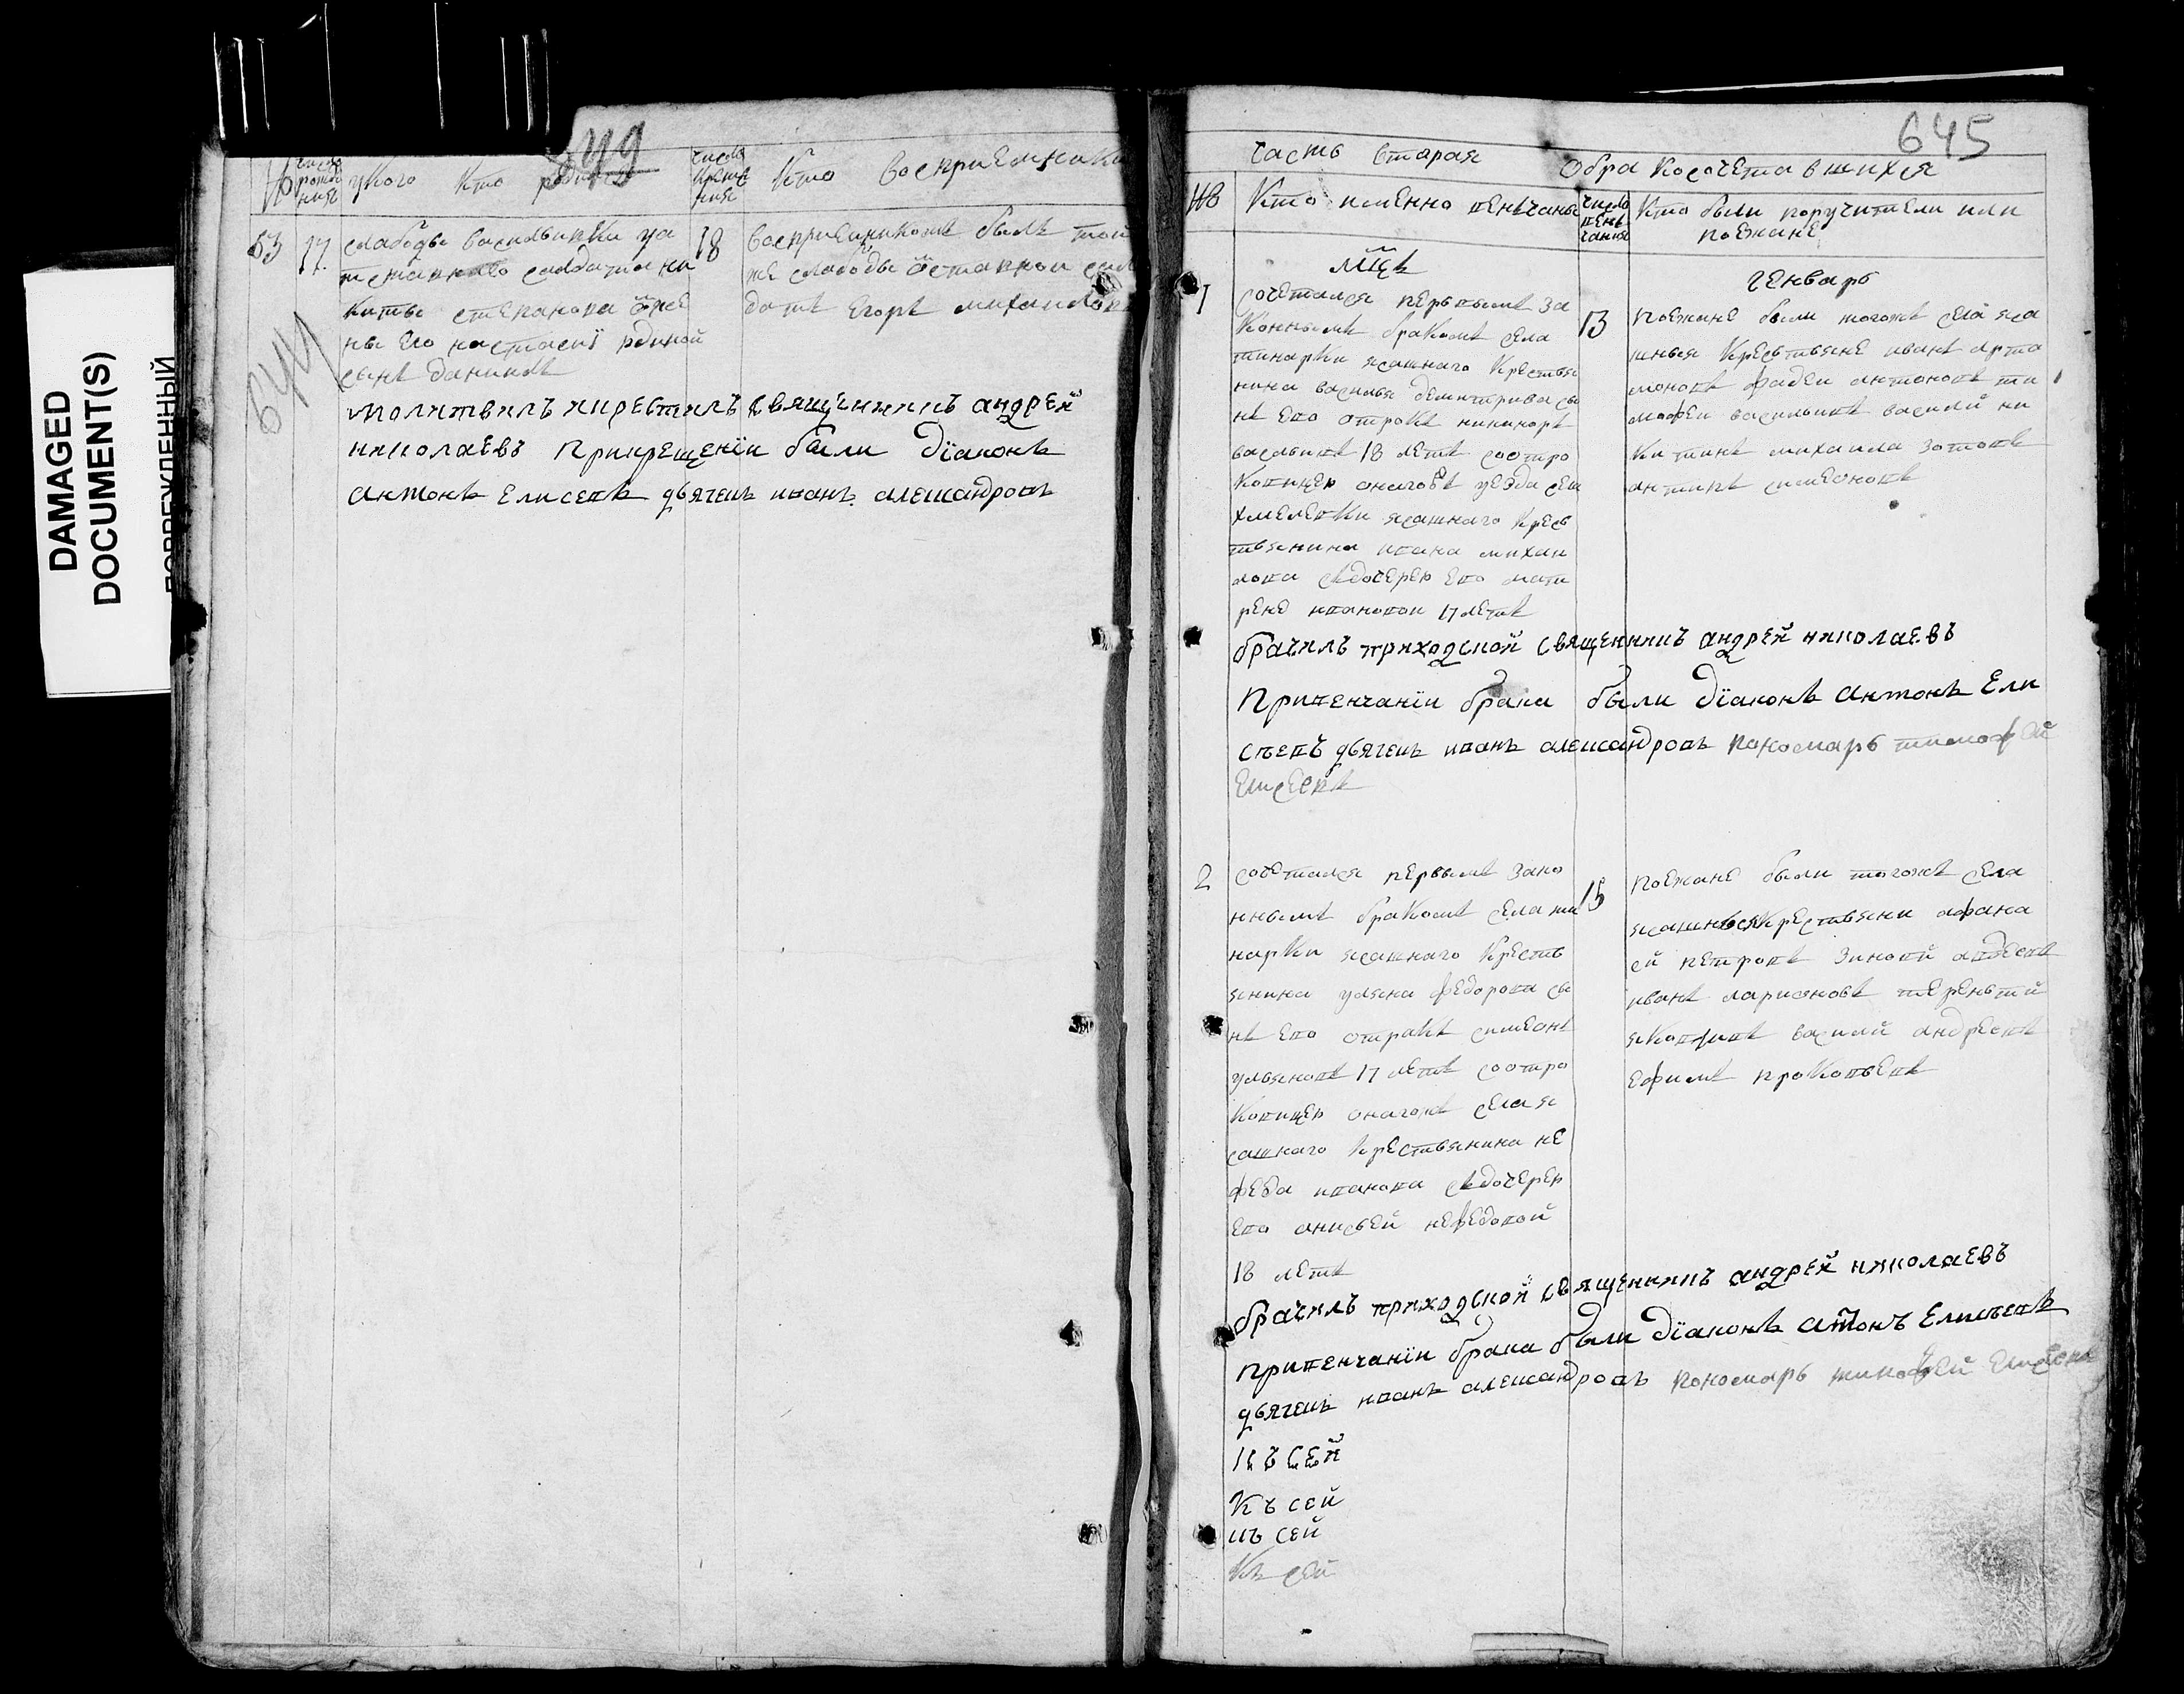 DAMAGED
DOCUMENT(S)
число рождения
у кого кто родился
число крещения
Кто восприемники
53
17
слабоды васильевки уа
тставнаго салдата ни
киты степанова ӧже
ны его настасиї рдиной
сынъ данилъ
18
восприемникомъ былъ той
же слабоды ӧставнои сал
датъ Егоръ михаиловъ
молитвилъ и крестилъ священникъ андрей
николаевъ Прикрещенїи были дїаконъ
антонъ Елисевъ дьячекъ иванъ александровъ
645
часть вторая
Обра косочетавшихся
Кто именно венчаны
число венчания
Кто были поручители или
поезжане
мцъ
генварь
1
сочетался первымъ за
коннымъ бракомъ села
тинарки ясашнаго крестья
нина василья демитрива сы
нъ его отрокъ никифоръ
васильивъ 18 летъ соотро
ковицею онагоже уезда села
хмелевки ясашнаго кресь
тьянина ивана михаи
лова сдочерею его мат
реной ивановои 17 летъ
13
поежане были тогожъ села яса
шныя кресьтьяне иванъ арта
моновъ фадеи антоновъ ти
мофеи васильивъ василий ни
китинъ михаила зотовъ
антипъ симеоновъ
брачилъ приходской священникъ андрей николаевъ
Привенчанїи брака были дїаконъ антонъ Ели
сѣевъ дьячекъ иванъ александровъ пономарь тимофей
Елисеевъ
2
сочетался первымъ зако
ннымъ бракомъ села ти
нарки ясашнаго кресть
янина ульяна федорова сы
нъ его отракъ симеонъ
ульяновъ 17 летъ соотро
ковицею онагожъ села я
сашнаго крестьянина не
феда иванова сдочерею
его анисьей нефедовой
18 летъ
15
поежане были тогожъ села
ясашныя крестьяни афана
сй петровъ зиновй авдеевъ
иванъ ларионовъ терентий
яковливъ василй андреевъ
ефимъ прокопьевъ
брачилъ приходской священникъ андрей николаевъ
привенчанїи брака были дїаконъ антонъ Елисѣевъ
дьячекъ иванъ александровъ пономарь тимофей Елисеевъ
Къ сей
Къ сей
къ сей
Къ сей